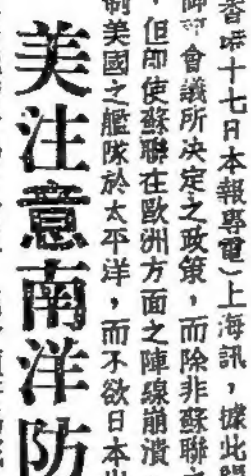 香時十七日本報專電)上海訊,據此間
會議所決定之政策,而除非蘇聯
,但即使蘇聯在歐洲方面之陣線崩潰
制美國之艦隊於太平洋,而不欲日本
美注意南洋防